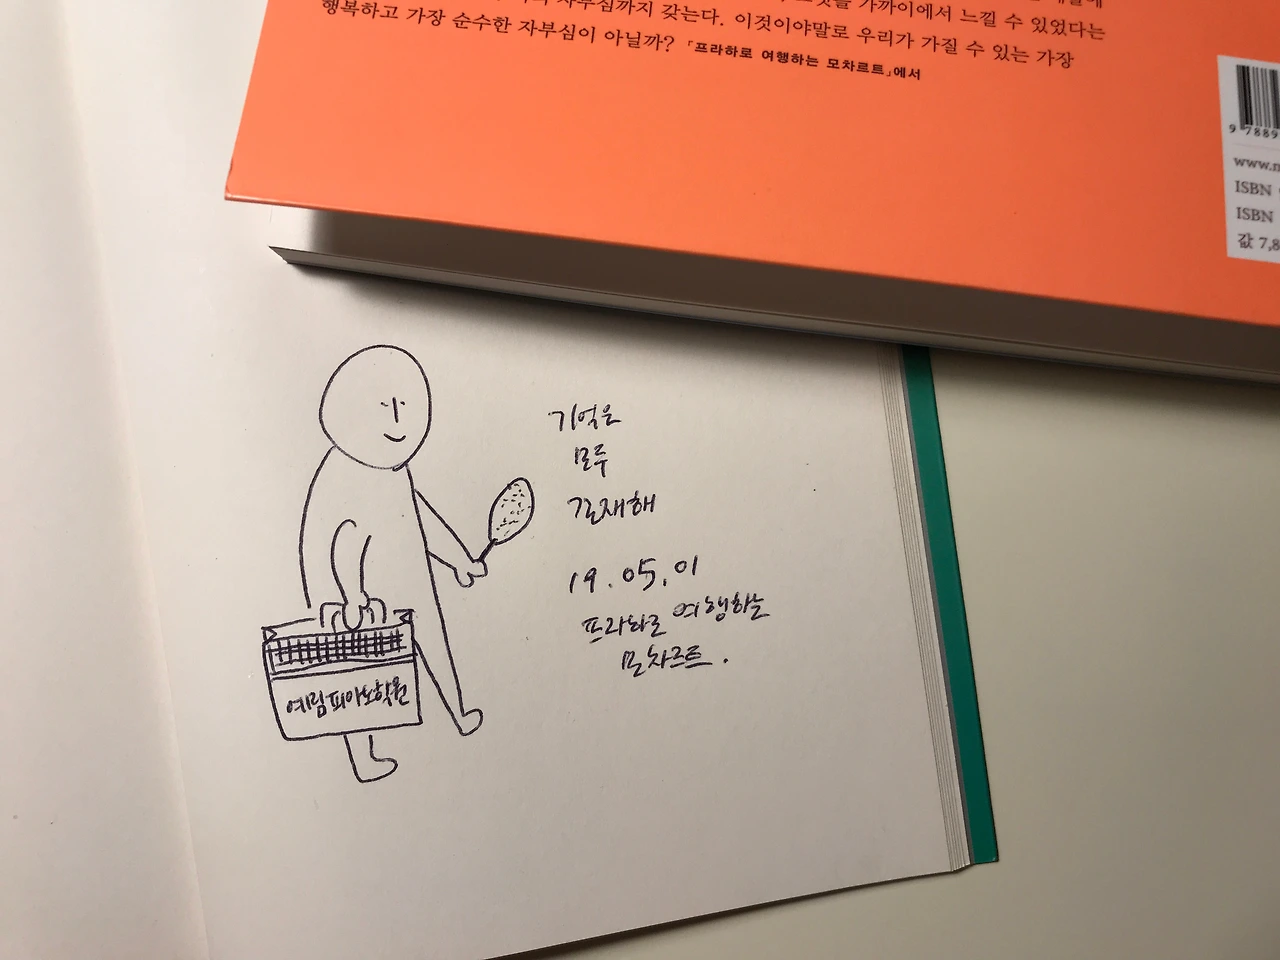 자부심까지 갖는다. 가까이에서 느낄 수 있었다는
행복하고 가장 순수한 자부심이 아닐까? 이것이야말로 우리가 가질 수 있는 가장
「프라하로 여행하는 모차르트」에서
9 7889
www.
ISBN
ISBN
값 7,8
기억은
모두
존재해
19.05.01
프라하로 여행하는
모차르트.
예림피아노학원